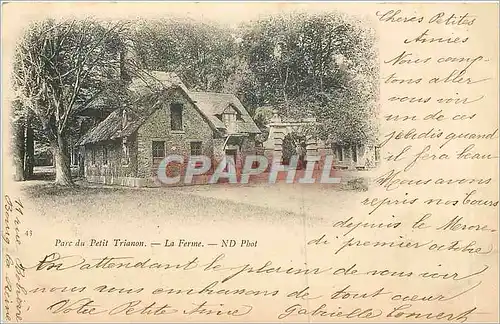 Chères Petites
Amies
Nous comp-
tons aller
vous voir
un de ces
jeudis quand
il fera beau
Nous avons
repris nos cours
depuis le
du premier octobre
En attendant le plaisir de vous voir
nous vous embrassons de tout cœur
Votre Petite Amie Gabrielle
16 rue
Bourg la Reine
43
Parc du Petit Trianon. — La Ferme. — ND Phot
CARTAPHIL